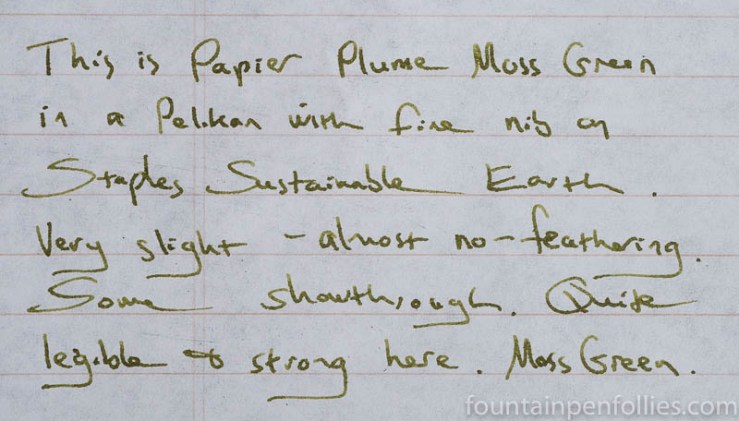 This is Papier Plume Moss Green
in a Pelikan with fine nib on
Staples Sustainable Earth.
Very slight - almost no - feathering.
Some showthrough. Quite
legible & strong here. Moss Green.
fountainpenfollies.com